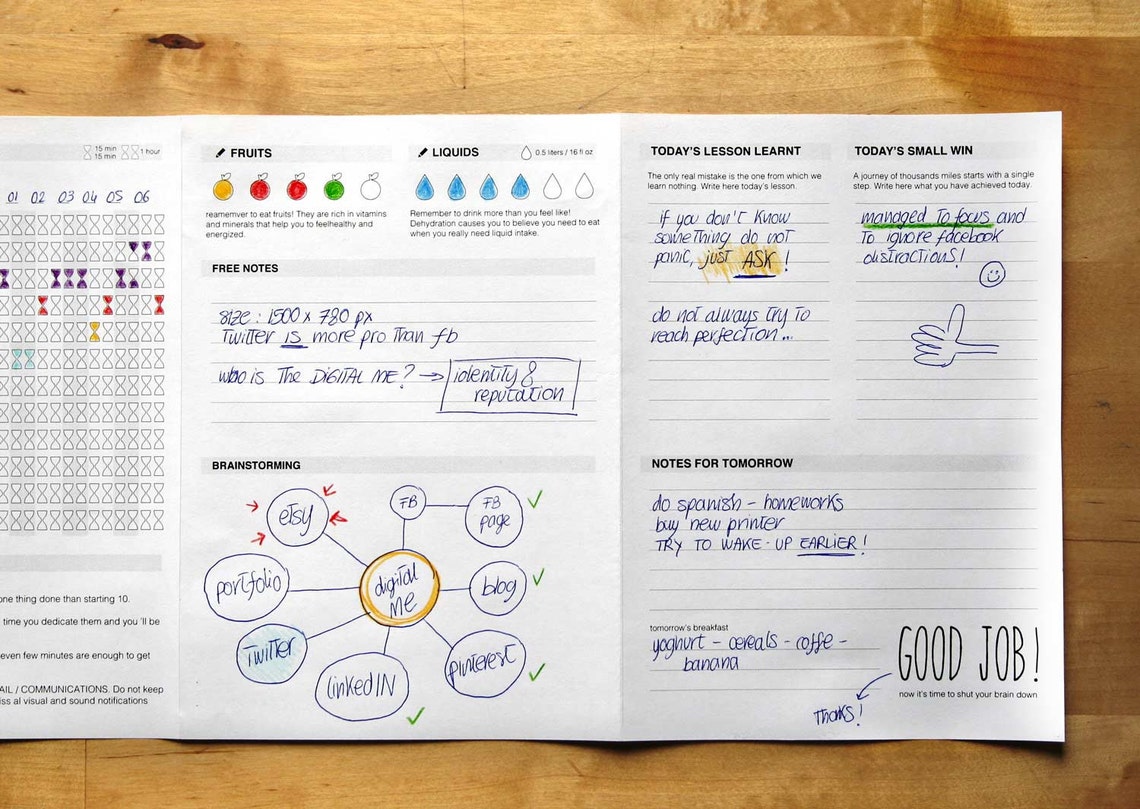 15 min
15 min
1 hour
01 02 03 04 05 06
one thing done than starting 10.
time you dedicate them and you 'll be
even few minutes are enough to get
AIL / COMMUNICATIONS. Do not keep
iss al visual and sound notifications
FRUITS
reamemver to eat fruits! They are rich in vitamins
and minerals that help you to feelhealthey and
energized.
LIQUIDS
0.5 liters / 16 fl oz
Remember to drink more than you feel like!
Dehydration causes you to believe you need to eat
when you really need liquid intake.
FREE NOTES
size: 1500 x 780 px
Twitter is more pro than fb
who is the DIGITAL ME? → identity &
reputation
BRAINSTORMING
etsy
FB
FB
page
portfolio
digital
ME
blog
Twitter
linkedIN
pinterest
TODAY'S LESSON LEARNT
The only real mistake is the one from which we
learn nothing. Write here today's lesson.
if you don't know
something do not
panic, just ASK!
do not always try to
reach perfection...
TODAY'S SMALL WIN
A journey of thousands miles starts with a single
step. Write here what you have achieved today.
managed to focus and
to ignore facebook
distractions!
NOTES FOR TOMORROW
do spanish - homeworks
buy new printer
TRY TO WAKE-UP EARLIER!
tomorrow's breakfast
yoghurt - cereals - coffe -
banana
GOOD JOB!
now it's time to shut your brain down
Thanks!